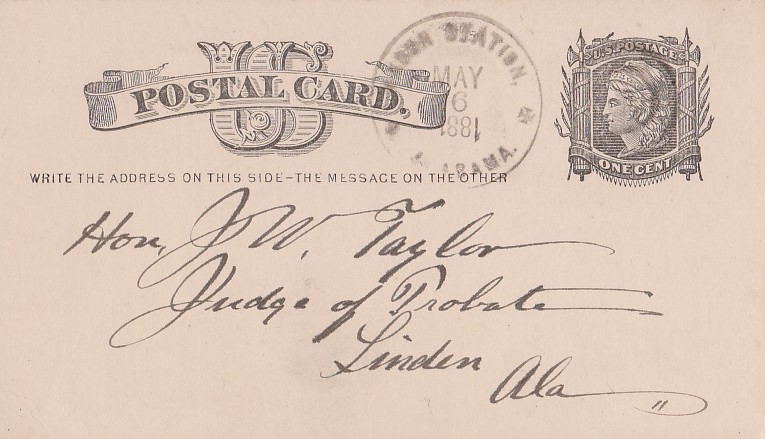 US
POSTAL CARD.
STATION,
MAY
6
1881
ALABAMA.
U.S. POSTAGE
ONE CENT
WRITE THE ADDRESS ON THIS SIDE-THE MESSAGE ON THE OTHER
Hon, J W. Taylor
Judge of Probate
Linden
Ala "